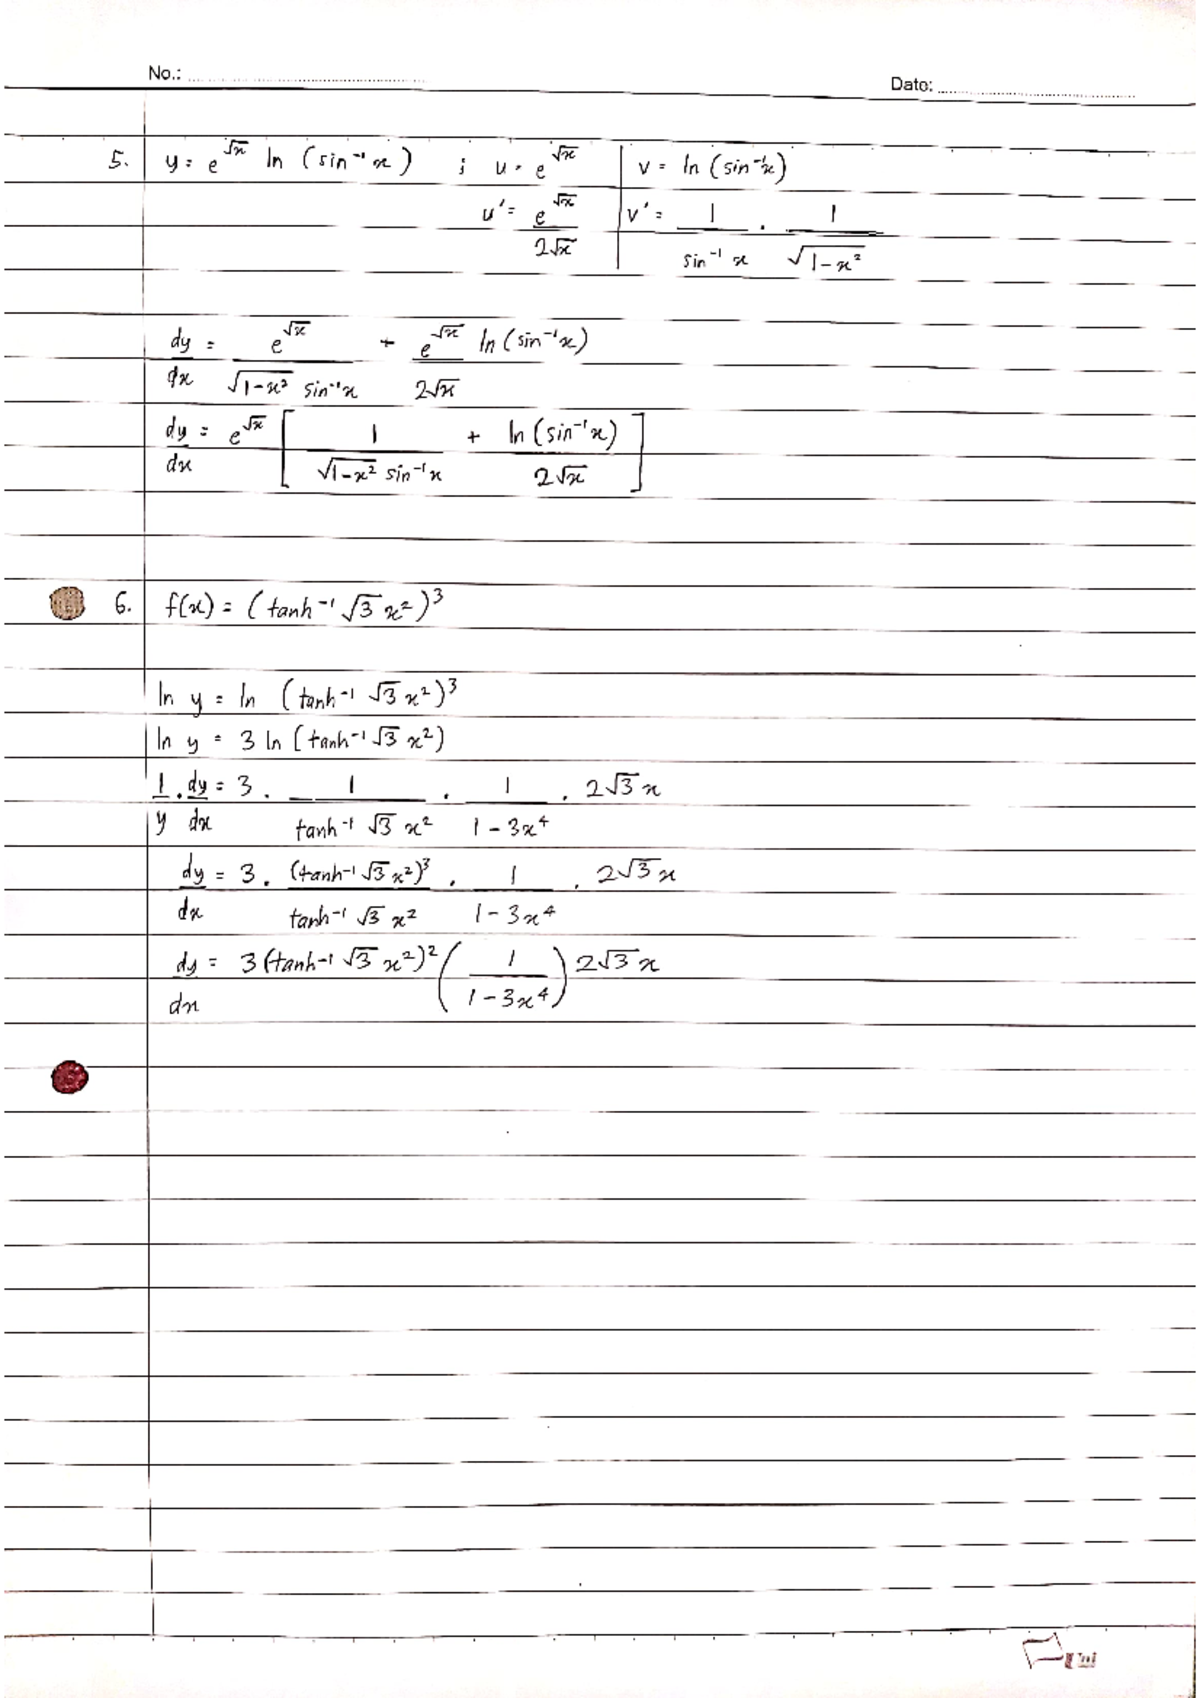 No.: Date:
5. y = e^√x ln (sin⁻¹ x) ; u = e^√x | v = ln (sin⁻¹x)
u' = e^√x / 2√x | v' = 1 / sin⁻¹ x . 1 / √(1-x²)
dy/dx = e^√x / √(1-x²) sin⁻¹x + e^√x / 2√x ln (sin⁻¹x)
dy/dx = e^√x [ 1 / √(1-x²) sin⁻¹x + ln (sin⁻¹x) / 2√x ]
6. f(x) = (tanh⁻¹ √3 x²)³
ln y = ln (tanh⁻¹ √3 x²)³
ln y = 3 ln (tanh⁻¹ √3 x²)
1/y . dy/dx = 3 . 1 / tanh⁻¹ √3 x² . 1 / 1 - 3x⁴ . 2√3 x
dy/dx = 3 . (tanh⁻¹ √3 x²)³ / tanh⁻¹ √3 x² . 1 / 1 - 3x⁴ . 2√3 x
dy/dx = 3 (tanh⁻¹ √3 x²)² ( 1 / 1 - 3x⁴ ) 2√3 x